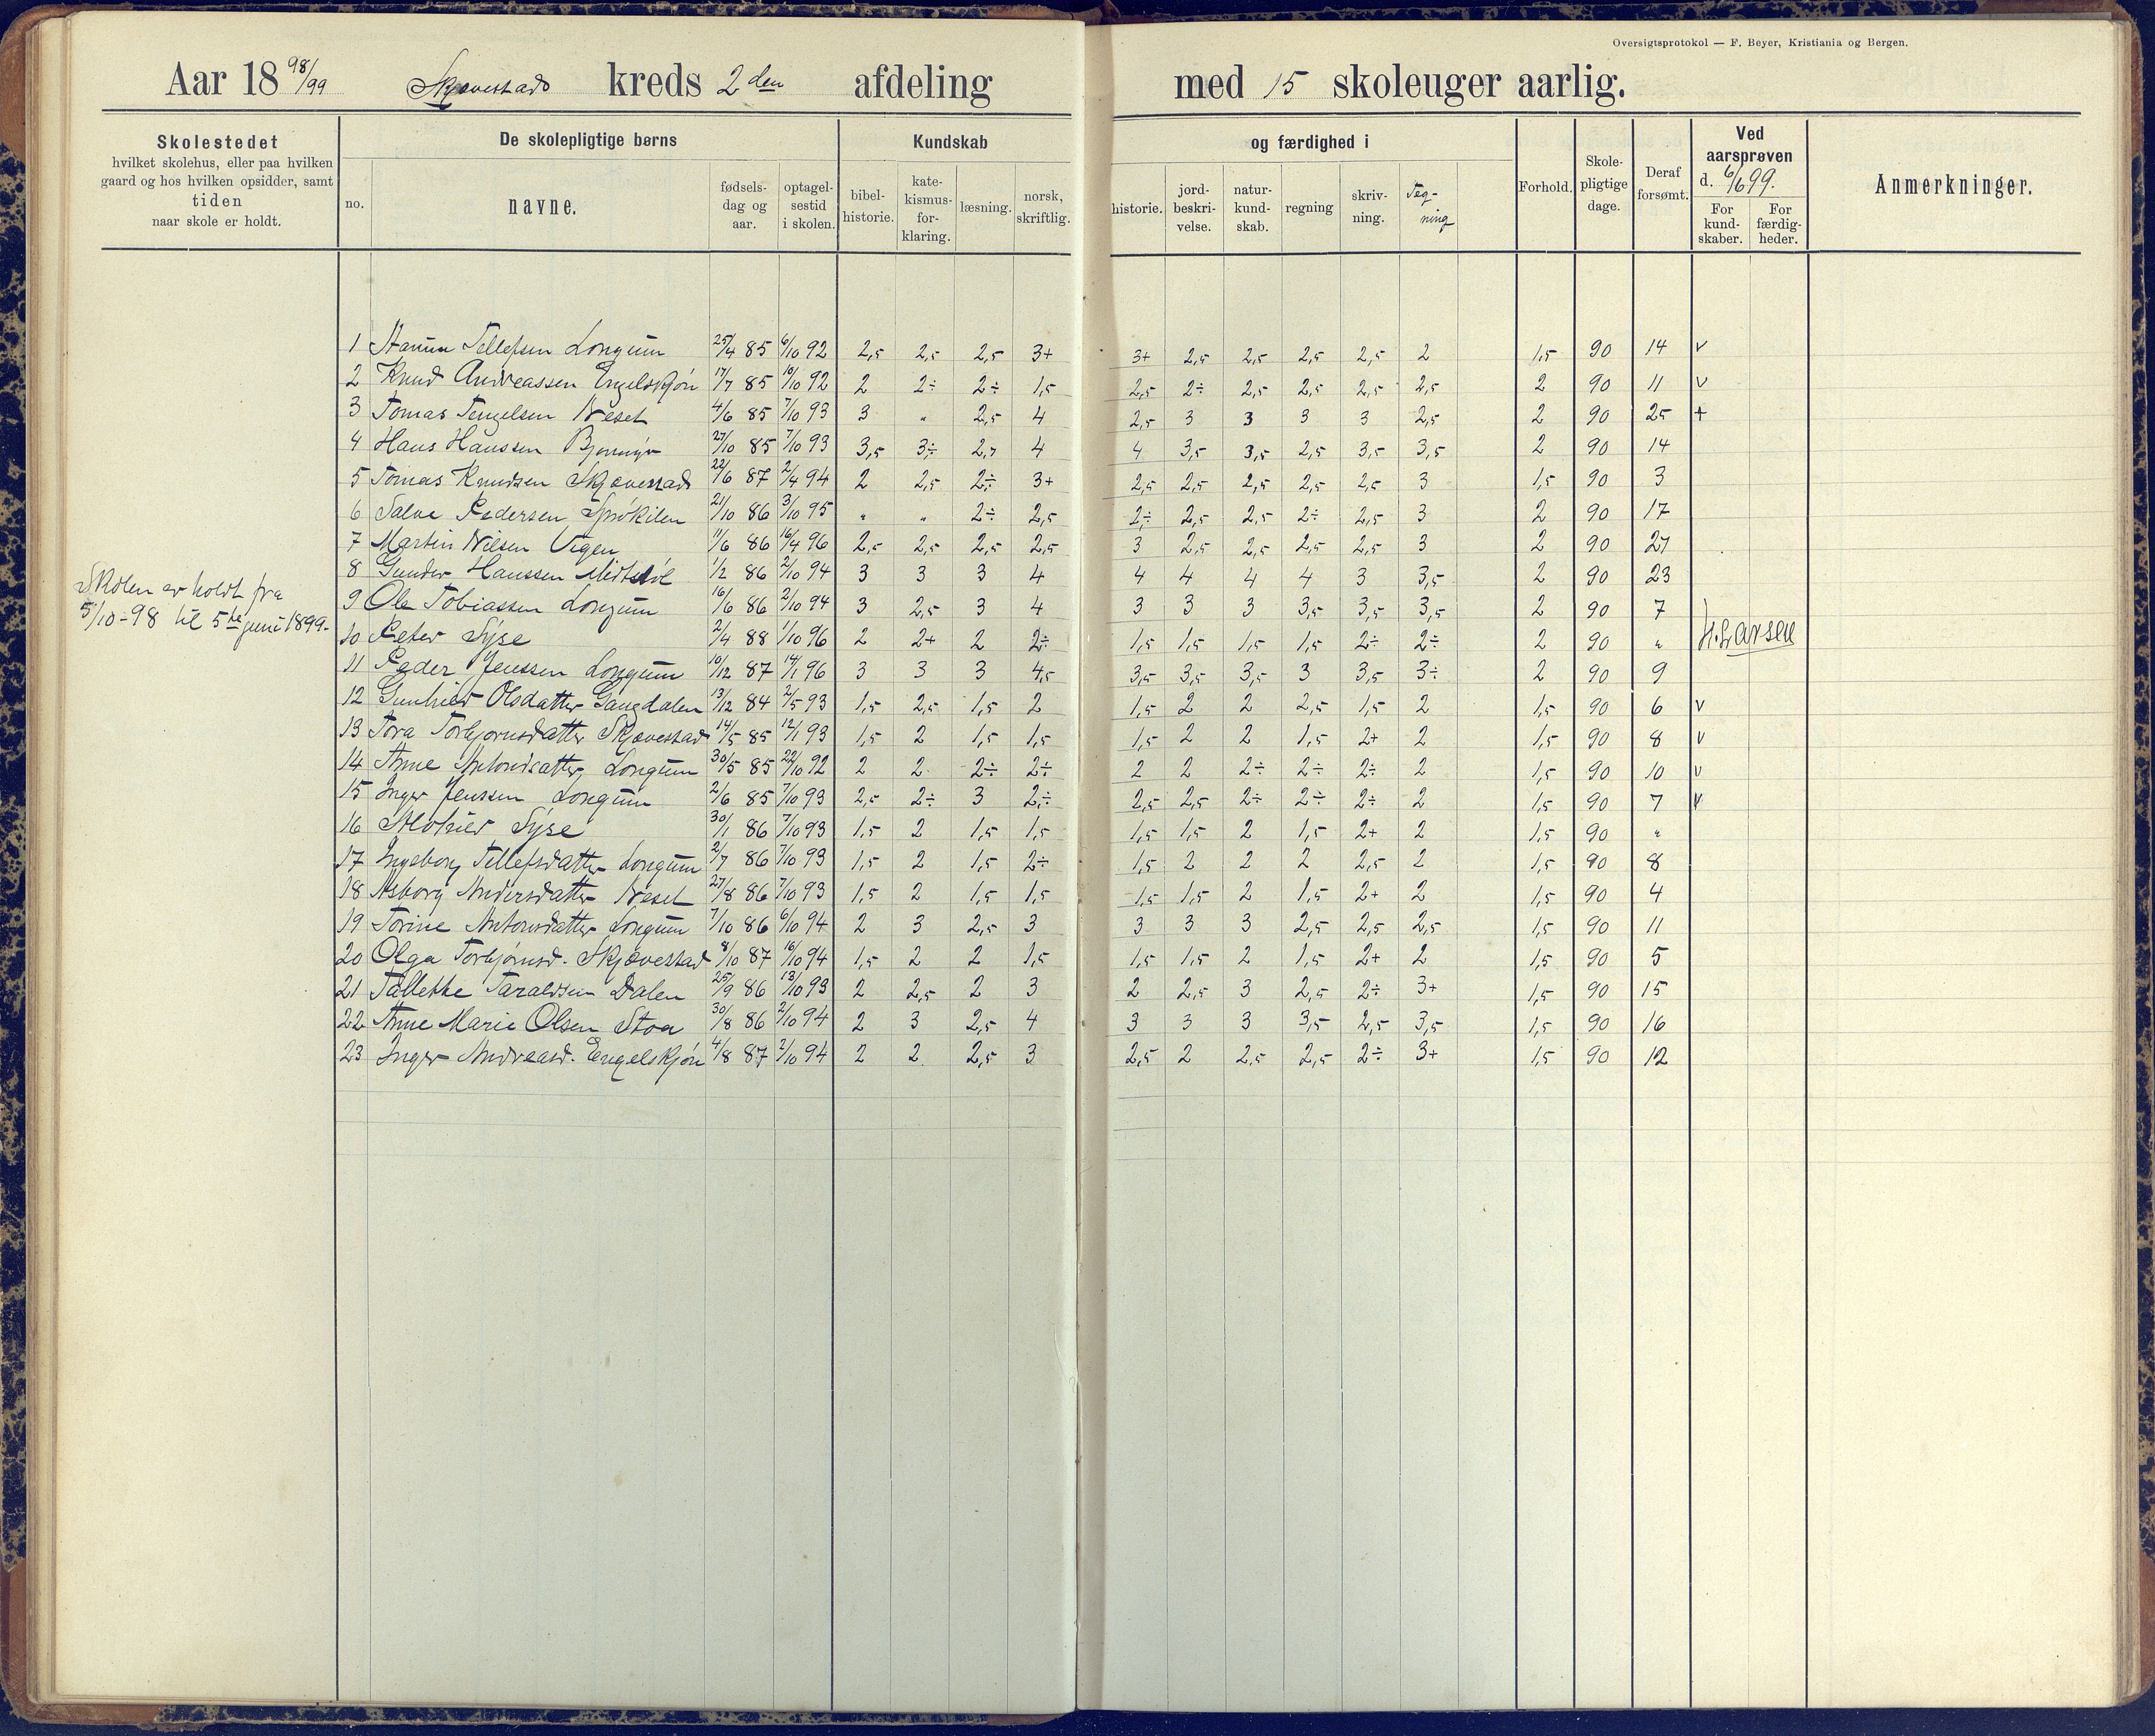 Oversigtsprotokol — F. Beyer, Kristiania og Bergen.
Aar 18 98/99 Skjævestad kreds 2 den afdeling med 15 skoleuger aarlig.
Skolestedet hvilket skolehus, eller paa hvilken gaard og hos hvilken opsidder, samt tiden naar skole er holdt.
De skolepligtige børns
no. navne. fødsels-dag og aar. optagel-sestid i skolen.
Kundskab og færdighed i
bibel-historie. kate-kismus-for-klaring. læsning. norsk, skriftlig. historie. jord-beskri-velse. natur-kund-skab. regning skriv-ning. Teg-ning
Forhold. Skole-pligtige dage. Deraf forsømt.
Ved aarsprøven d. 6/6 99.
For kund-skaber. For færdig-heder.
Anmerkninger.
1 Tellefsen Longum 25/4 85 6/10 92 2,5 2,5 2,5 3+ 3+ 2,5 2,5 2,5 2,5 2 1,5 90 14 v
2 Knud Andreassen Engelskjøn 17/7 85 10/10 92 2 2÷ 2÷ 1,5 2,5 2÷ 2,5 2,5 2,5 2,5 2 90 11 v
3 Tomas Tengelsen Neset 4/6 85 7/10 93 3 " 2,5 4 2,5 3 3 3 3 2,5 2 90 25 +
4 Hans Hanssen 27/10 85 7/10 93 3,5 3÷ 4 4 3,5 3,5 2,5 3,5 3,5 2 90 14
5 Tomas Knudsen Skjævestad 22/6 87 2/4 94 2 2,5 2÷ 3+ 2,5 2,5 2,5 2,5 2,5 3 1,5 90 3
6 Salve Pedersen Sprøkilen 21/10 86 3/10 95 " " 2÷ 2,5 2÷ 2,5 2,5 2÷ 2,5 3 2 90 17
7 Martin Nilsen Vigen 11/6 86 16/4 96 2,5 2,5 2,5 2,5 3 2,5 2,5 2,5 2,5 3 2 90 27
8 Gunder Hanssen Midtstøl 1/2 86 2/10 94 3 3 3 4 4 4 4 4 3 3,5 2 90 23
9 Ole Tobiassen Longum 16/6 86 2/10 94 3 2,5 3 4 3 3 3 3,5 3,5 3,5 2 90 7
Skolen er holdt fra
5/10-98 til 5te juni 1899.
10 Peter Syse 2/4 88 1/10 96 2 2+ 2 2÷ 1,5 1,5 1,5 1,5 2÷ 2÷ 2 90 " H. Larsen
11 Peder Jenssen Longum 10/12 87 14/1 96 3 3 3 4,5 3,5 3,5 3,5 3 3,5 3÷ 2 90 9
12 Gunhild Olsdatter Gangdalen 13/12 84 2/5 93 1,5 2,5 1,5 2 1,5 2 2 2,5 1,5 2 1,5 90 6 v
13 Tora Torbjornsdatter Skjævestad 14/5 85 12/1 93 1,5 2 1,5 1,5 1,5 2 2 1,5 2+ 2 1,5 90 8 v
14 Anne Antonsdatter Longum 30/5 85 22/10 92 2 2 2÷ 2÷ 2 2 2÷ 2÷ 2÷ 2 1,5 90 10 v
15 Inger Jenssen Longum 2/6 85 7/10 93 2,5 2÷ 3 2÷ 2,5 2,5 2÷ 2÷ 2÷ 2 1,5 90 7 v
16 Syse 30/1 86 7/10 93 1,5 2 1,5 1,5 1,5 1,5 2 1,5 2+ 2 1,5 90 "
17 Ingeborg Tellefsdatter Longum 2/7 86 7/10 93 1,5 2 1,5 2÷ 1,5 2 2 2 2,5 2 1,5 90 8
18 Asborg Andersdatter Neset 27/8 86 7/10 93 1,5 2 1,5 1,5 1,5 1,5 2 1,5 2+ 2 1,5 90 4
19 Torine Antonsdatter Longum 7/10 86 6/10 94 2 3 2,5 3 3 3 3 2,5 2,5 2,5 1,5 90 11
20 Olga Torbjørnsd. Skjævestad 8/10 87 16/10 94 1,5 2 2 1,5 1,5 1,5 2 1,5 2+ 2 1,5 90 5
21 Tallekke Taraldsen Dalen 25/9 86 13/10 93 2 2,5 2 3 2 2,5 3 2,5 2÷ 3+ 1,5 90 15
22 Anne Marie Olsen Stoa 30/8 86 2/10 94 2 3 2,5 4 3 3 3 3,5 2,5 3,5 1,5 90 16
23 Inger Andreasd. Engelskjøn 4/8 87 2/10 94 2 2 2,5 3 2,5 2 2,5 2,5 2÷ 3+ 1,5 90 12